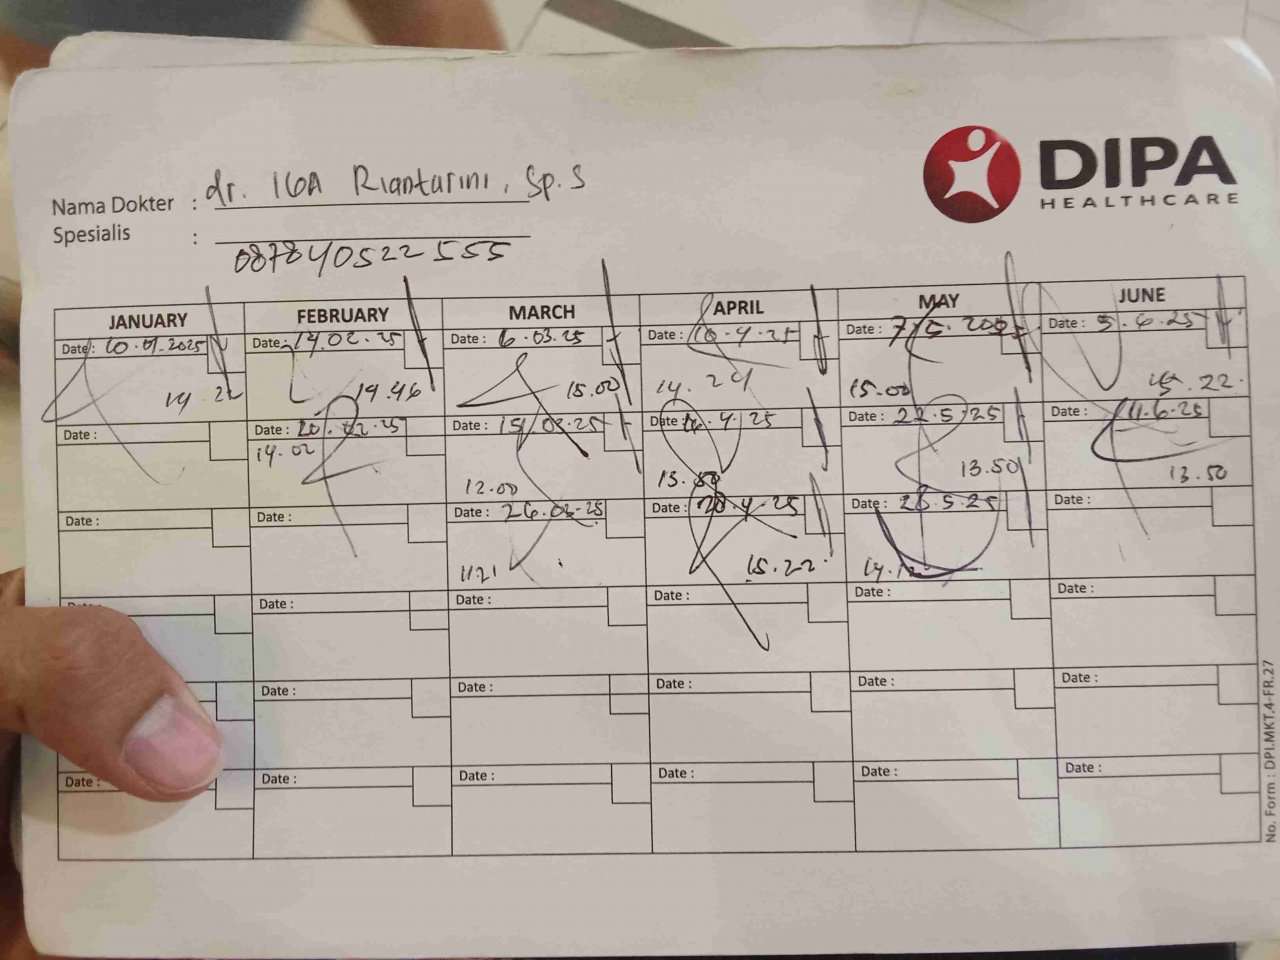 DIPA
HEALTHCARE
Nama Dokter : dr. IGA Riantarini, Sp.S
Spesialis :
087840522555
JANUARY FEBRUARY MARCH APRIL MAY JUNE
Date : 10.01.2025 Date : 14.02.25 Date : 6.03.25 Date : 10.4.25 Date : 7.5.2025 Date : 5.6.25
14.22 14.46 15.00 14.29 15.00 15.22
Date : Date : 20.02.25 Date : 15.03.25 Date : 16.4.25 Date : 22.5.25 Date : 11.6.25
14.02 12.00 13.50 13.50 13.50
Date : Date : Date : 26.03.25 Date : 28.4.25 Date : 28.5.25 Date :
11.21 15.22
Date : Date : Date : Date : Date : Date :
Date : Date : Date : Date : Date :
Date : Date : Date : Date : Date : Date :
No. Form : DPI.MKT.4-FR.27